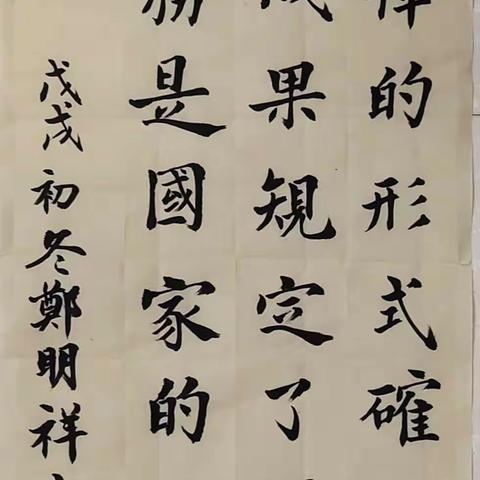 的形式確
果規定了
務是國家的
戊戌初冬鄭明祥